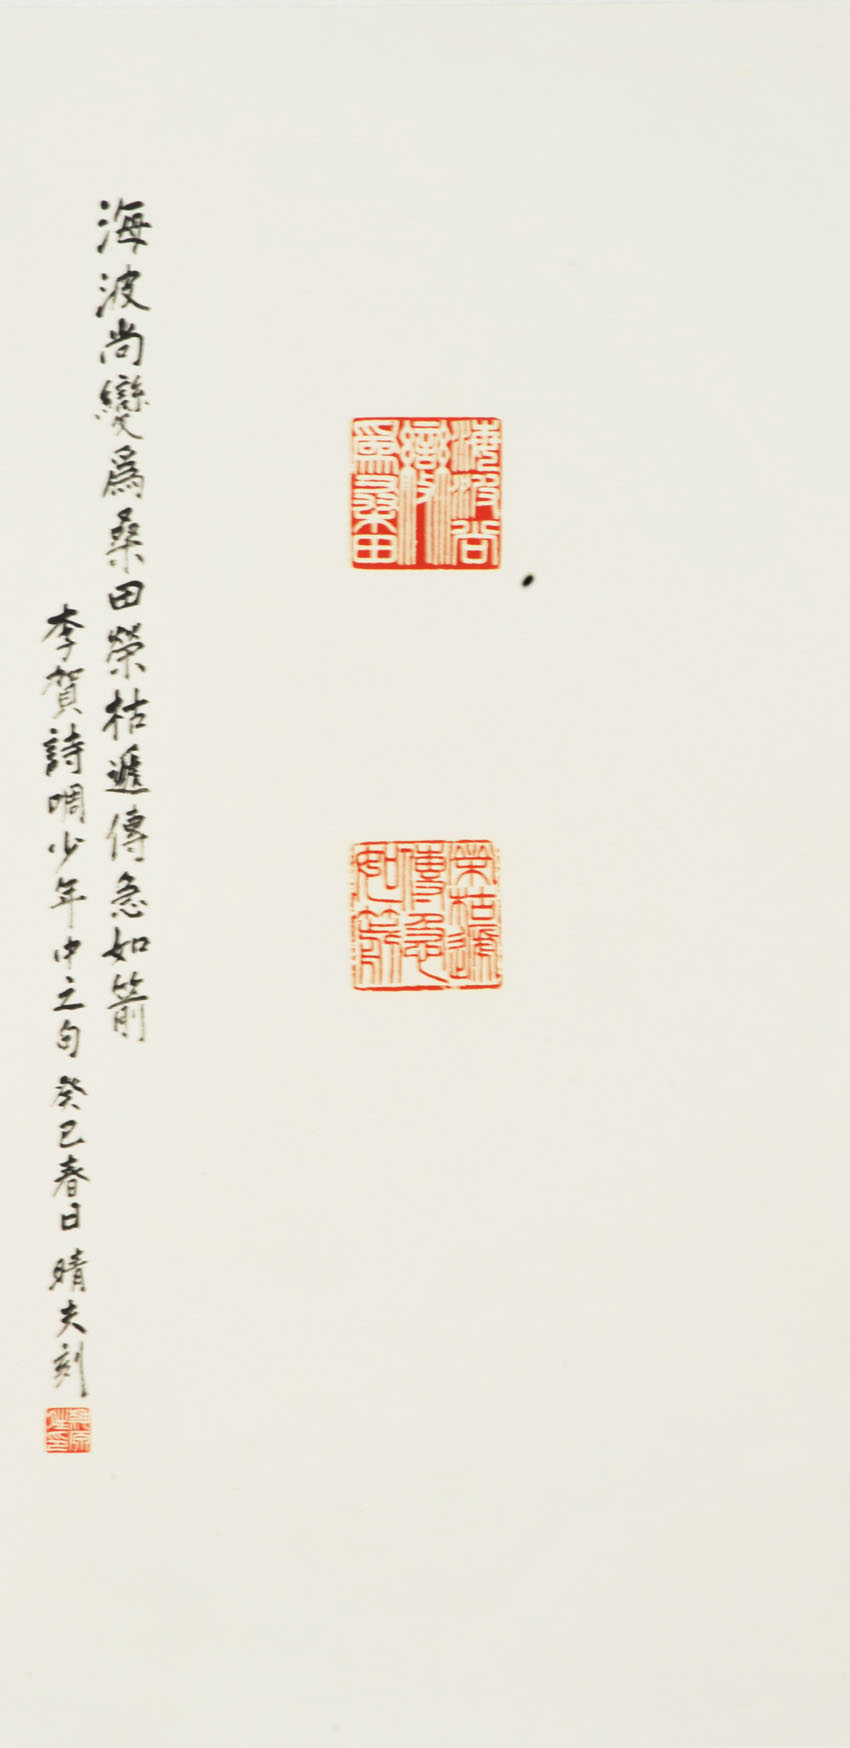 海波尚變為桑田
榮枯遞傳急如箭
海波尚變爲桑田榮枯遞傳急如箭
李賀詩啁少年中之句 癸巳春日 晴夫刻